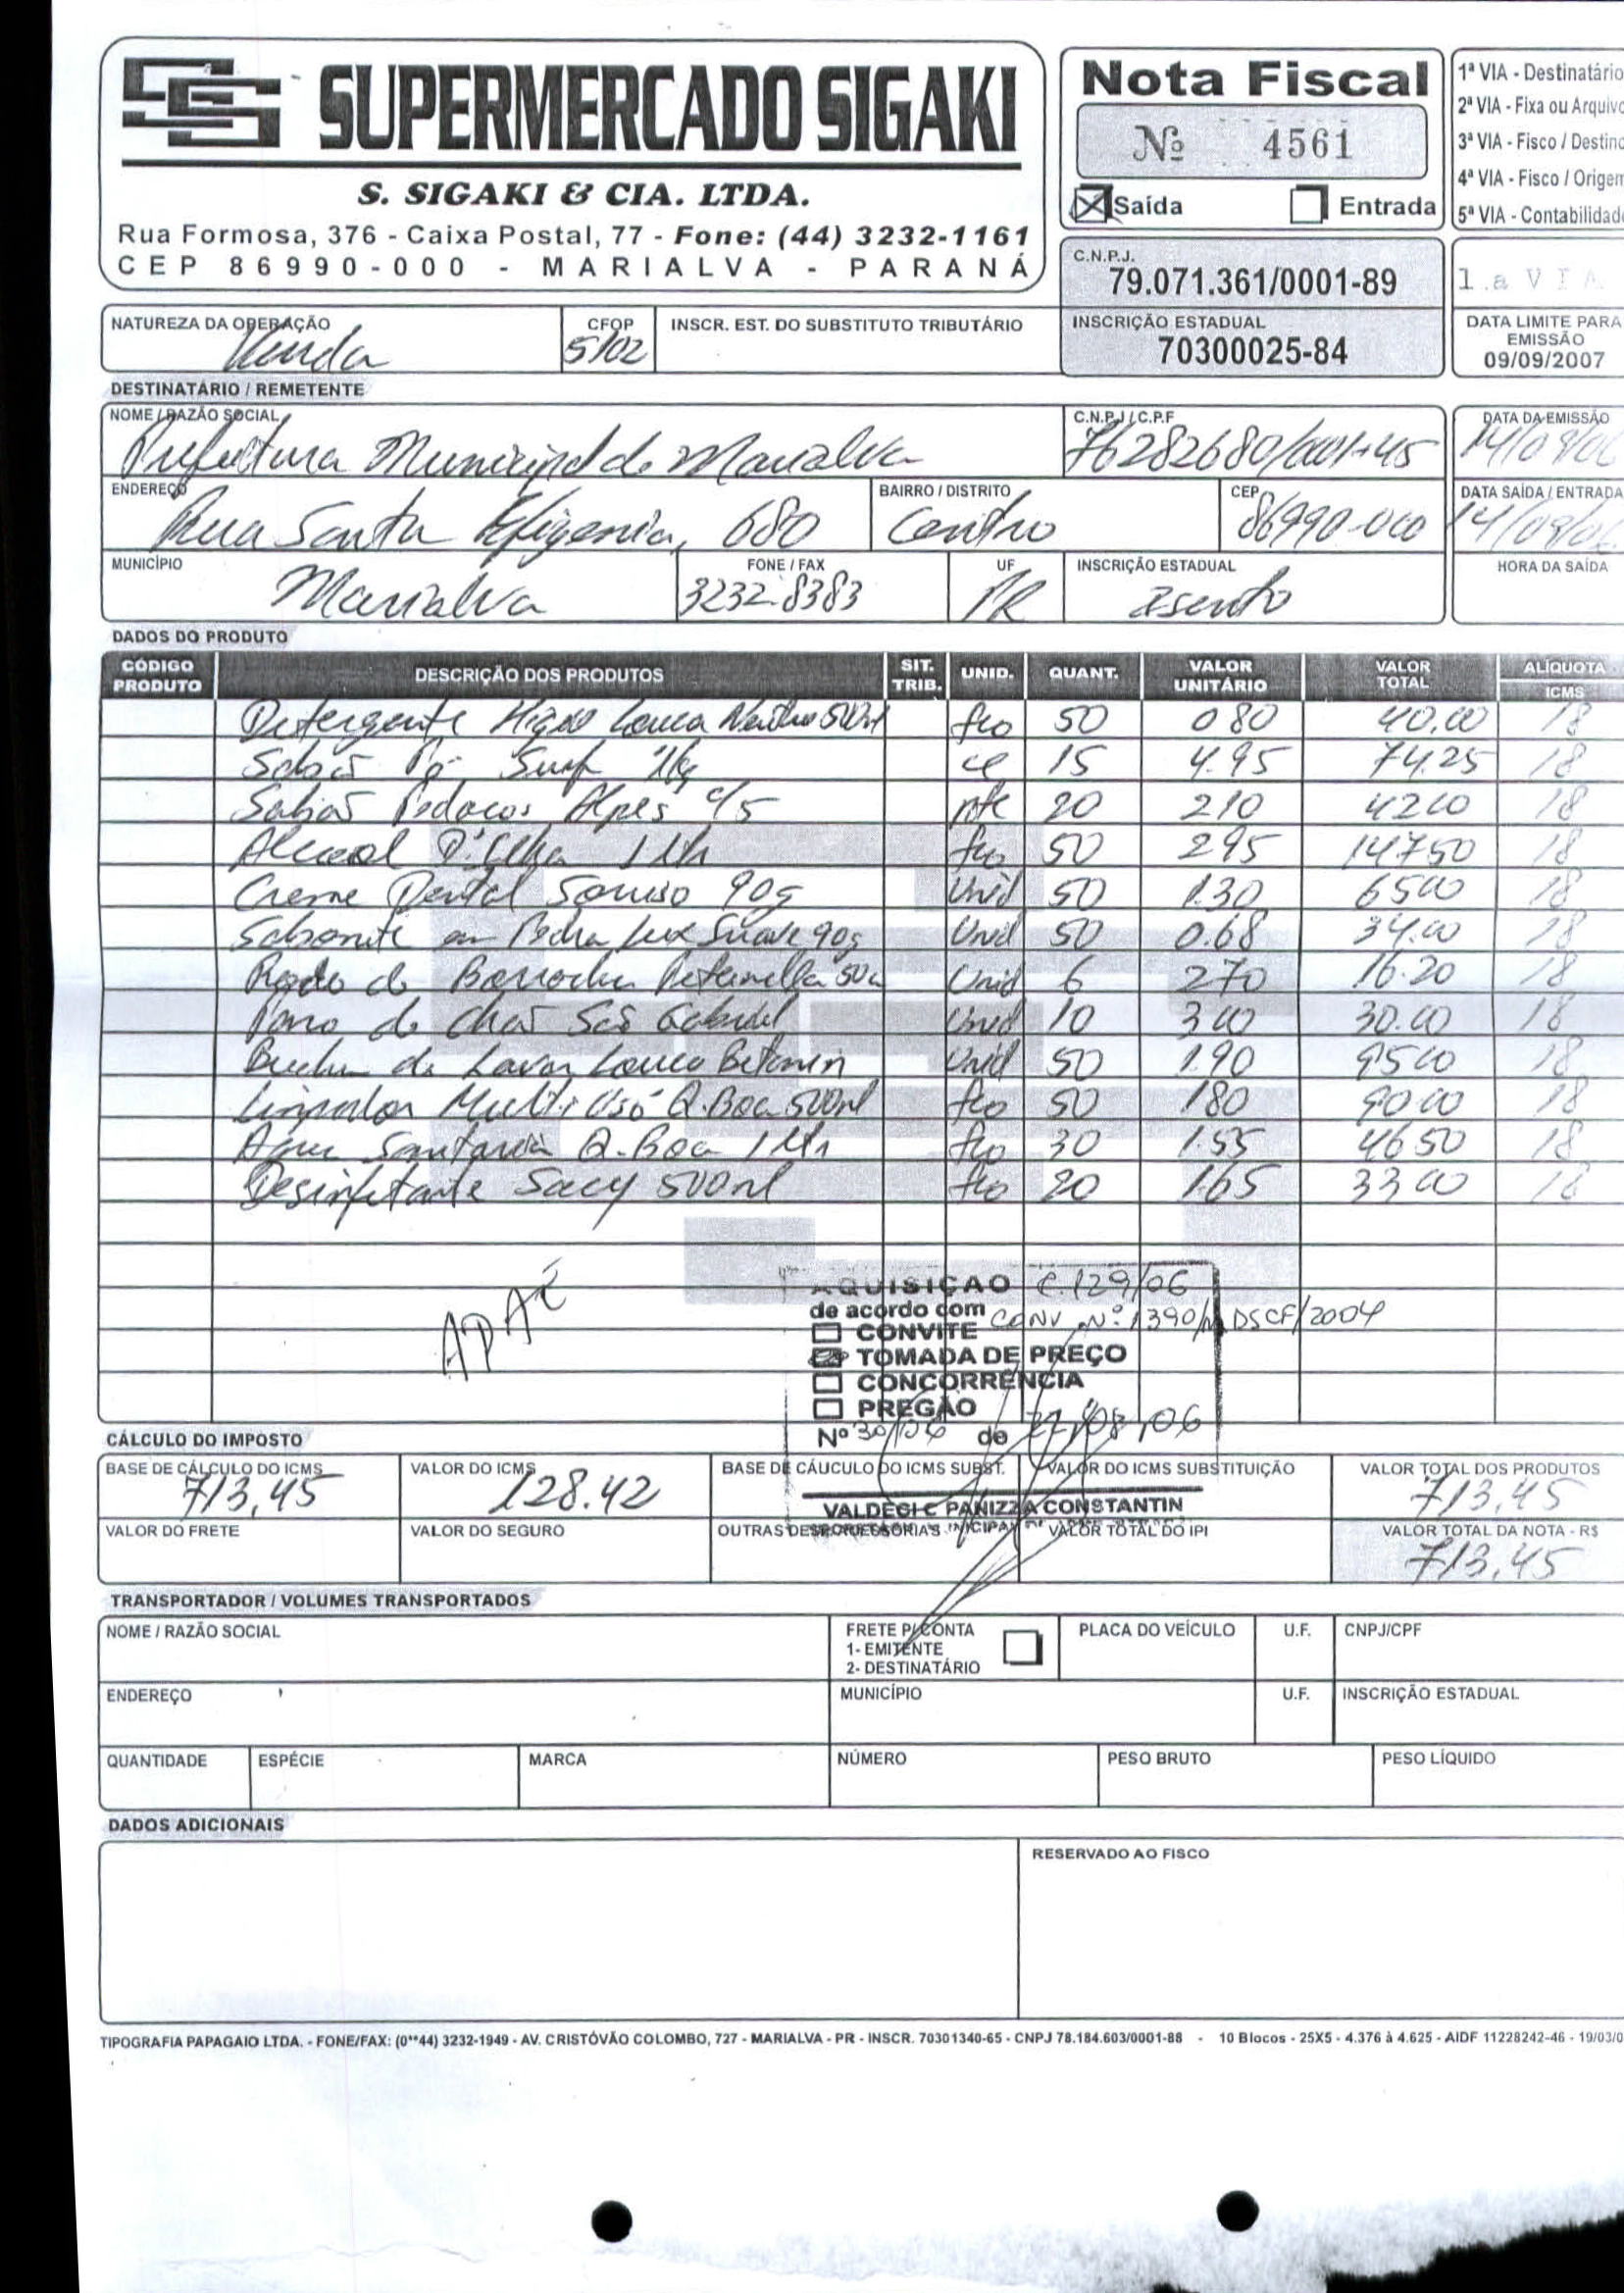 SUPERMERCADO SIGAKI
S. SIGAKI & CIA. LTDA.
Rua Formosa, 376 - Caixa Postal, 77 - Fone: (44) 3232-1161
CEP 86990-000 - MARIALVA - PARANÁ
Nota Fiscal
Nº 4561
Saída Entrada
1ª VIA - Destinatário
2ª VIA - Fixa ou Arquivo
3ª VIA - Fisco / Destino
4ª VIA - Fisco / Origem
5ª VIA - Contabilidade
C.N.P.J.
79.071.361/0001-89
1.a VIA
NATUREZA DA OPERAÇÃO CFOP INSCR. EST. DO SUBSTITUTO TRIBUTÁRIO
Venda 5102
INSCRIÇÃO ESTADUAL
70300025-84
DATA LIMITE PARA
EMISSÃO
09/09/2007
DESTINATÁRIO / REMETENTE
NOME / RAZÃO SOCIAL C.N.P.J / C.P.F DATA DA EMISSÃO
Prefeitura Municipal de Marialva 76282680/0001-45 14/09/06
ENDEREÇO BAIRRO / DISTRITO CEP DATA SAÍDA / ENTRADA
Rua Santa Efigenia, 680 Centro 86990-000 14/09/06
MUNICÍPIO FONE / FAX UF INSCRIÇÃO ESTADUAL HORA DA SAÍDA
Marialva 3232-8383 PR Isento
DADOS DO PRODUTO
CÓDIGO PRODUTO DESCRIÇÃO DOS PRODUTOS SIT. TRIB. UNID. QUANT. VALOR UNITÁRIO VALOR TOTAL ALÍQUOTA ICMS
Detergente Louca Neutro 500ml fco 50 080 40.00 18
Sabão Pó Surf 1kg cx 15 4.95 74.25 18
Sabão Pedacos Alpes c/5 pte 20 210 4200 18
Alcool 1 Ltr fco 50 295 14750 18
Creme Dental Sorriso 90g Unid 50 1.30 6500 18
Sabonete em Pedra Lux Suave 90g Unid 50 0.68 34.00 18
Rodo de Borracha 50c Unid 6 270 16.20 18
Pano de Chão São Gabriel Unid 10 300 30.00 18
Bucha de Lavar Louca Betanin Unid 50 1.90 9500 18
Limpador Multi Uso Q.Boa 500ml fco 50 180 9000 18
Agua Sanitaria Q.Boa 1 Ltr fco 30 1.55 4650 18
Desinfetante Sacy 500ml fco 20 165 3300 18
APAE
AQUISIÇÃO C.129/06
de acordo com CONV. Nº 1390/ DSCF/2004
CONVITE
TOMADA DE PREÇO
CONCORRÊNCIA
PREGÃO
Nº 30/06 de /08/06
CÁLCULO DO IMPOSTO
BASE DE CÁLCULO DO ICMS VALOR DO ICMS BASE DE CÁUCULO DO ICMS SUBST. VALOR DO ICMS SUBSTITUIÇÃO VALOR TOTAL DOS PRODUTOS
713,45 128.42 713,45
PANIZZA CONSTANTIN
VALOR DO FRETE VALOR DO SEGURO VALOR TOTAL DO IPI VALOR TOTAL DA NOTA - R$
713,45
TRANSPORTADOR / VOLUMES TRANSPORTADOS
NOME / RAZÃO SOCIAL FRETE P/ CONTA PLACA DO VEÍCULO U.F. CNPJ/CPF
1- EMITENTE
2- DESTINATÁRIO
ENDEREÇO MUNICÍPIO U.F. INSCRIÇÃO ESTADUAL
QUANTIDADE ESPÉCIE MARCA NÚMERO PESO BRUTO PESO LÍQUIDO
DADOS ADICIONAIS
RESERVADO AO FISCO
TIPOGRAFIA PAPAGAIO LTDA. - FONE/FAX: (0**44) 3232-1949 - AV. CRISTÓVÃO COLOMBO, 727 - MARIALVA - PR - INSCR. 70301340-65 - CNPJ 78.184.603/0001-88 - 10 Blocos - 25X5 - 4.376 à 4.625 - AIDF 11228242-46 - 19/03/0